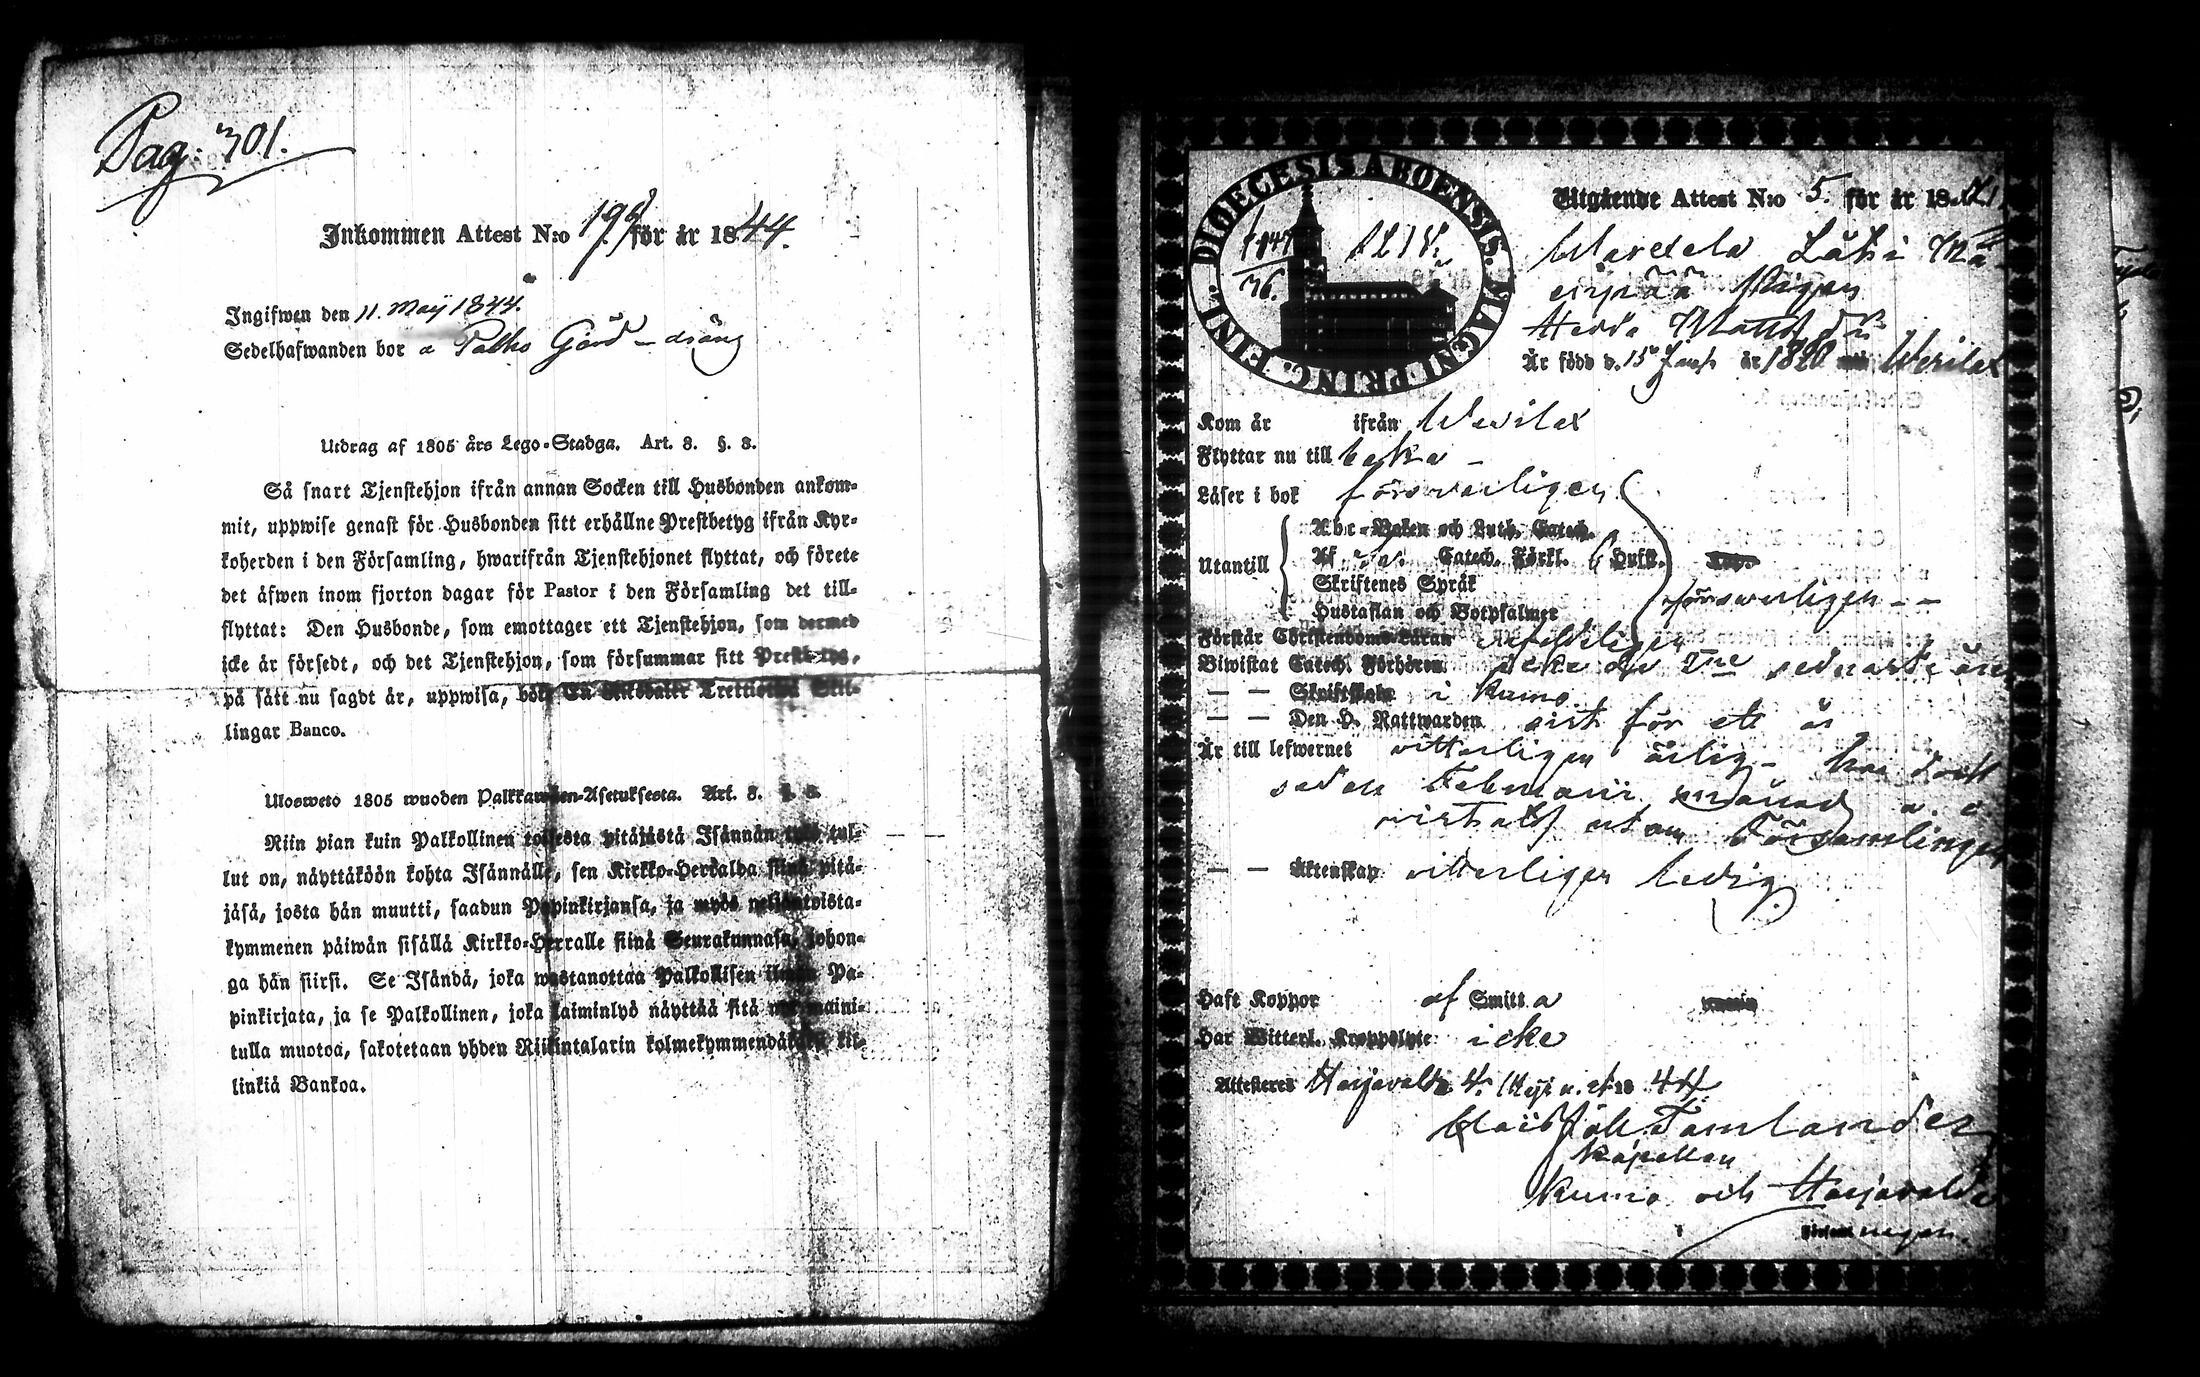 Pag: 301.
Inkommen Attest N:o 198 för år 1844.
Ingifwen den 11 Maÿ 1844.
Sedelhafwanden bor a Palho Gård
Utdrag af 1805 års Lego-Stadga. Art. 8. §. 8.
Så snart Tjenstehjon ifrån annan Socken till Husbonden ankom-
mit, uppwise genast för Husbonden sitt erhållne Prestbetyg ifrån Kyr-
koherden i den Församling, hwarifrån Tjenstehjonet flyttat, och förete
det äfwen inom fjorton dagar för Pastor i den Församling det till-
flyttat: Den Husbonde, som emottager ett Tjenstehjon, som dermed
icke är försedt, och det Tjenstehjon, som försummar sitt Prestbetyg,
på sätt nu sagdt är, uppwisa, böte En Riksdaler Trettietwå Skil-
lingar Banco.
Ulosweto 1805 wuoden Palkkawäen-Asetuksesta. Art. 8. §. 8.
Niin pian kuin Palkollinen toisesta pitäjästä Isännän tykö tul-
lut on, näyttäköön kohta Isännälle, sen Kirkko-Herralda siinä pitä-
jäsä, josta hän muutti, saadun Papinkirjansa, ja myös neljäntoista-
kymmenen päiwän sisällä Kirkko-Herralle siinä Seurakunnasa, johon-
ga hän siirsi. Se Isändä, joka wastanottaa Palkollisen ilman Pa-
pinkirjata, ja se Palkollinen, joka laiminlyö näyttää sitä nyt maini-
tulla muotoa, sakoitetaan yhden Riikintalarin kolmekymmendäkaksi kil-
linkiä Bankoa.
DIOECESIS ABOENSIS. MAGNI PRINC. FINL.
Utgående Attest N:o 5. för år 1844
Pigan
Hedda
Är född d. 15 år 1820
Kom år ifrån
Flyttar nu till
Läser i bok försvarligen
Utantill
Abc-Boken och Luth. Catech.
Af Catech. Förkl. Hufst.
Skriftenes Språk
Hustaflan och Botpsalmer försvarligen
Förstår Christendoms Läran
Biwistat Catech. Förhören icke de 2ne sednaste åren
— — Skriftskola i Kumo
— — Den H. Nattwarden sist för ett år
Är till lefwernet vitterligen ärlig - har dock
sedan Februarii månad
vistats utom Församlingen
— — Äktenskap vitterligen ledig.
Haft Koppor af Smitta
Har Witterl. Kroppslyte icke
Attesteras Harjavalda 4. Maji 1844
Tamlander
Kapellan
Kumo och Harjavalda